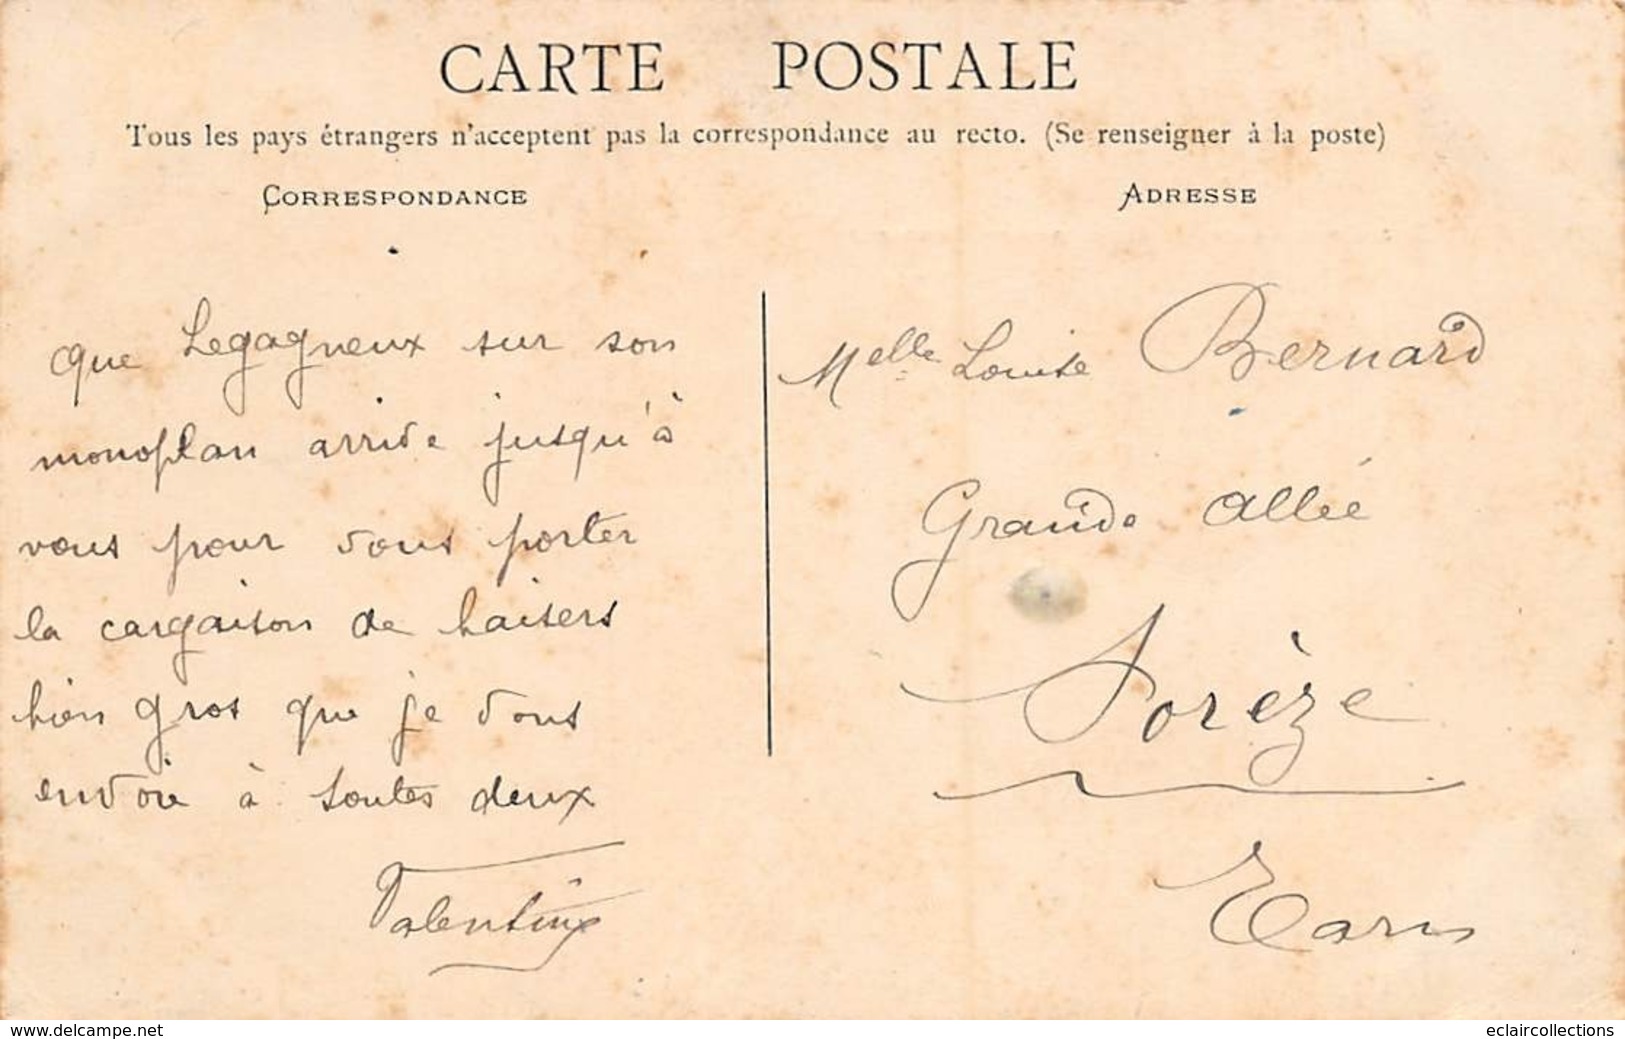 CARTE POSTALE
Tous les pays étrangers n'acceptent pas la correspondance au recto. (Se renseigner à la poste)
CORRESPONDANCE
ADRESSE
que Legagneux sur son
monoplan arrive jusqu'à
vous pour vous porter
la cargaison de baisers
bien gros que je vous
envoie à toutes deux
Valentine
Melle Louise Bernard
Grande Allée
Sorèze
Tarn
www.delcampe.net
eclaircollections